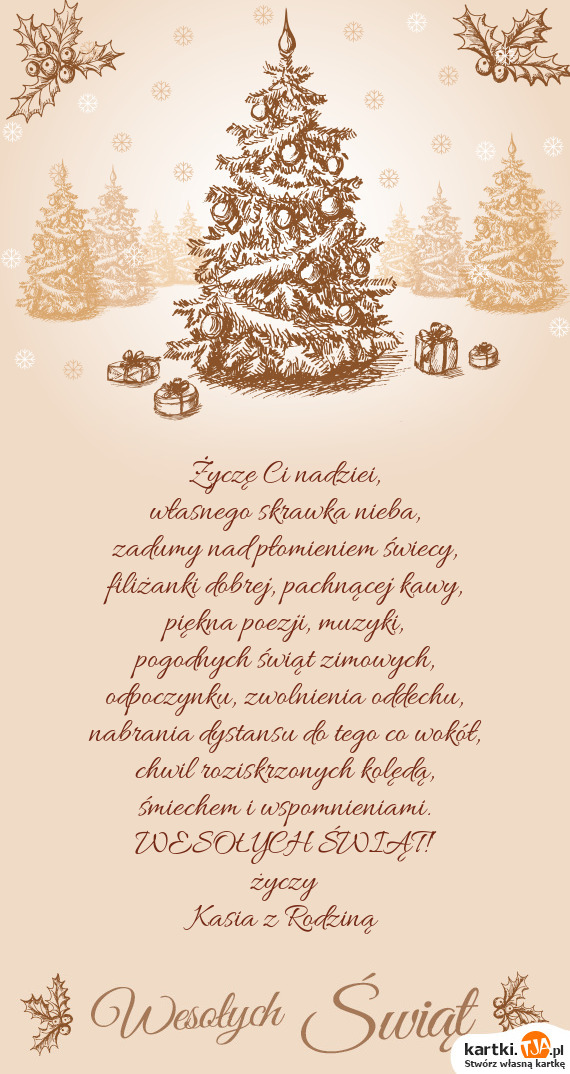 Życzę Ci nadziei,
własnego skrawka nieba,
zadumy nad płomieniem świecy,
filiżanki dobrej, pachnącej kawy,
piękna poezji, muzyki,
pogodnych świąt zimowych,
odpoczynku, zwolnienia oddechu,
nabrania dystansu do tego co wokół,
chwil roziskrzonych kolędą,
śmiechem i wspomnieniami.
WESOŁYCH ŚWIĄT!
życzy
Kasia z Rodziną
Wesołych Świąt
kartki.TJA.pl
Stwórz własną kartkę